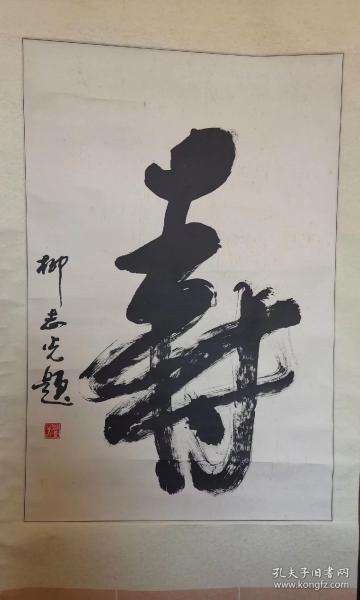 寿
柳志光题
孔夫子旧书网
www.kongfz.com